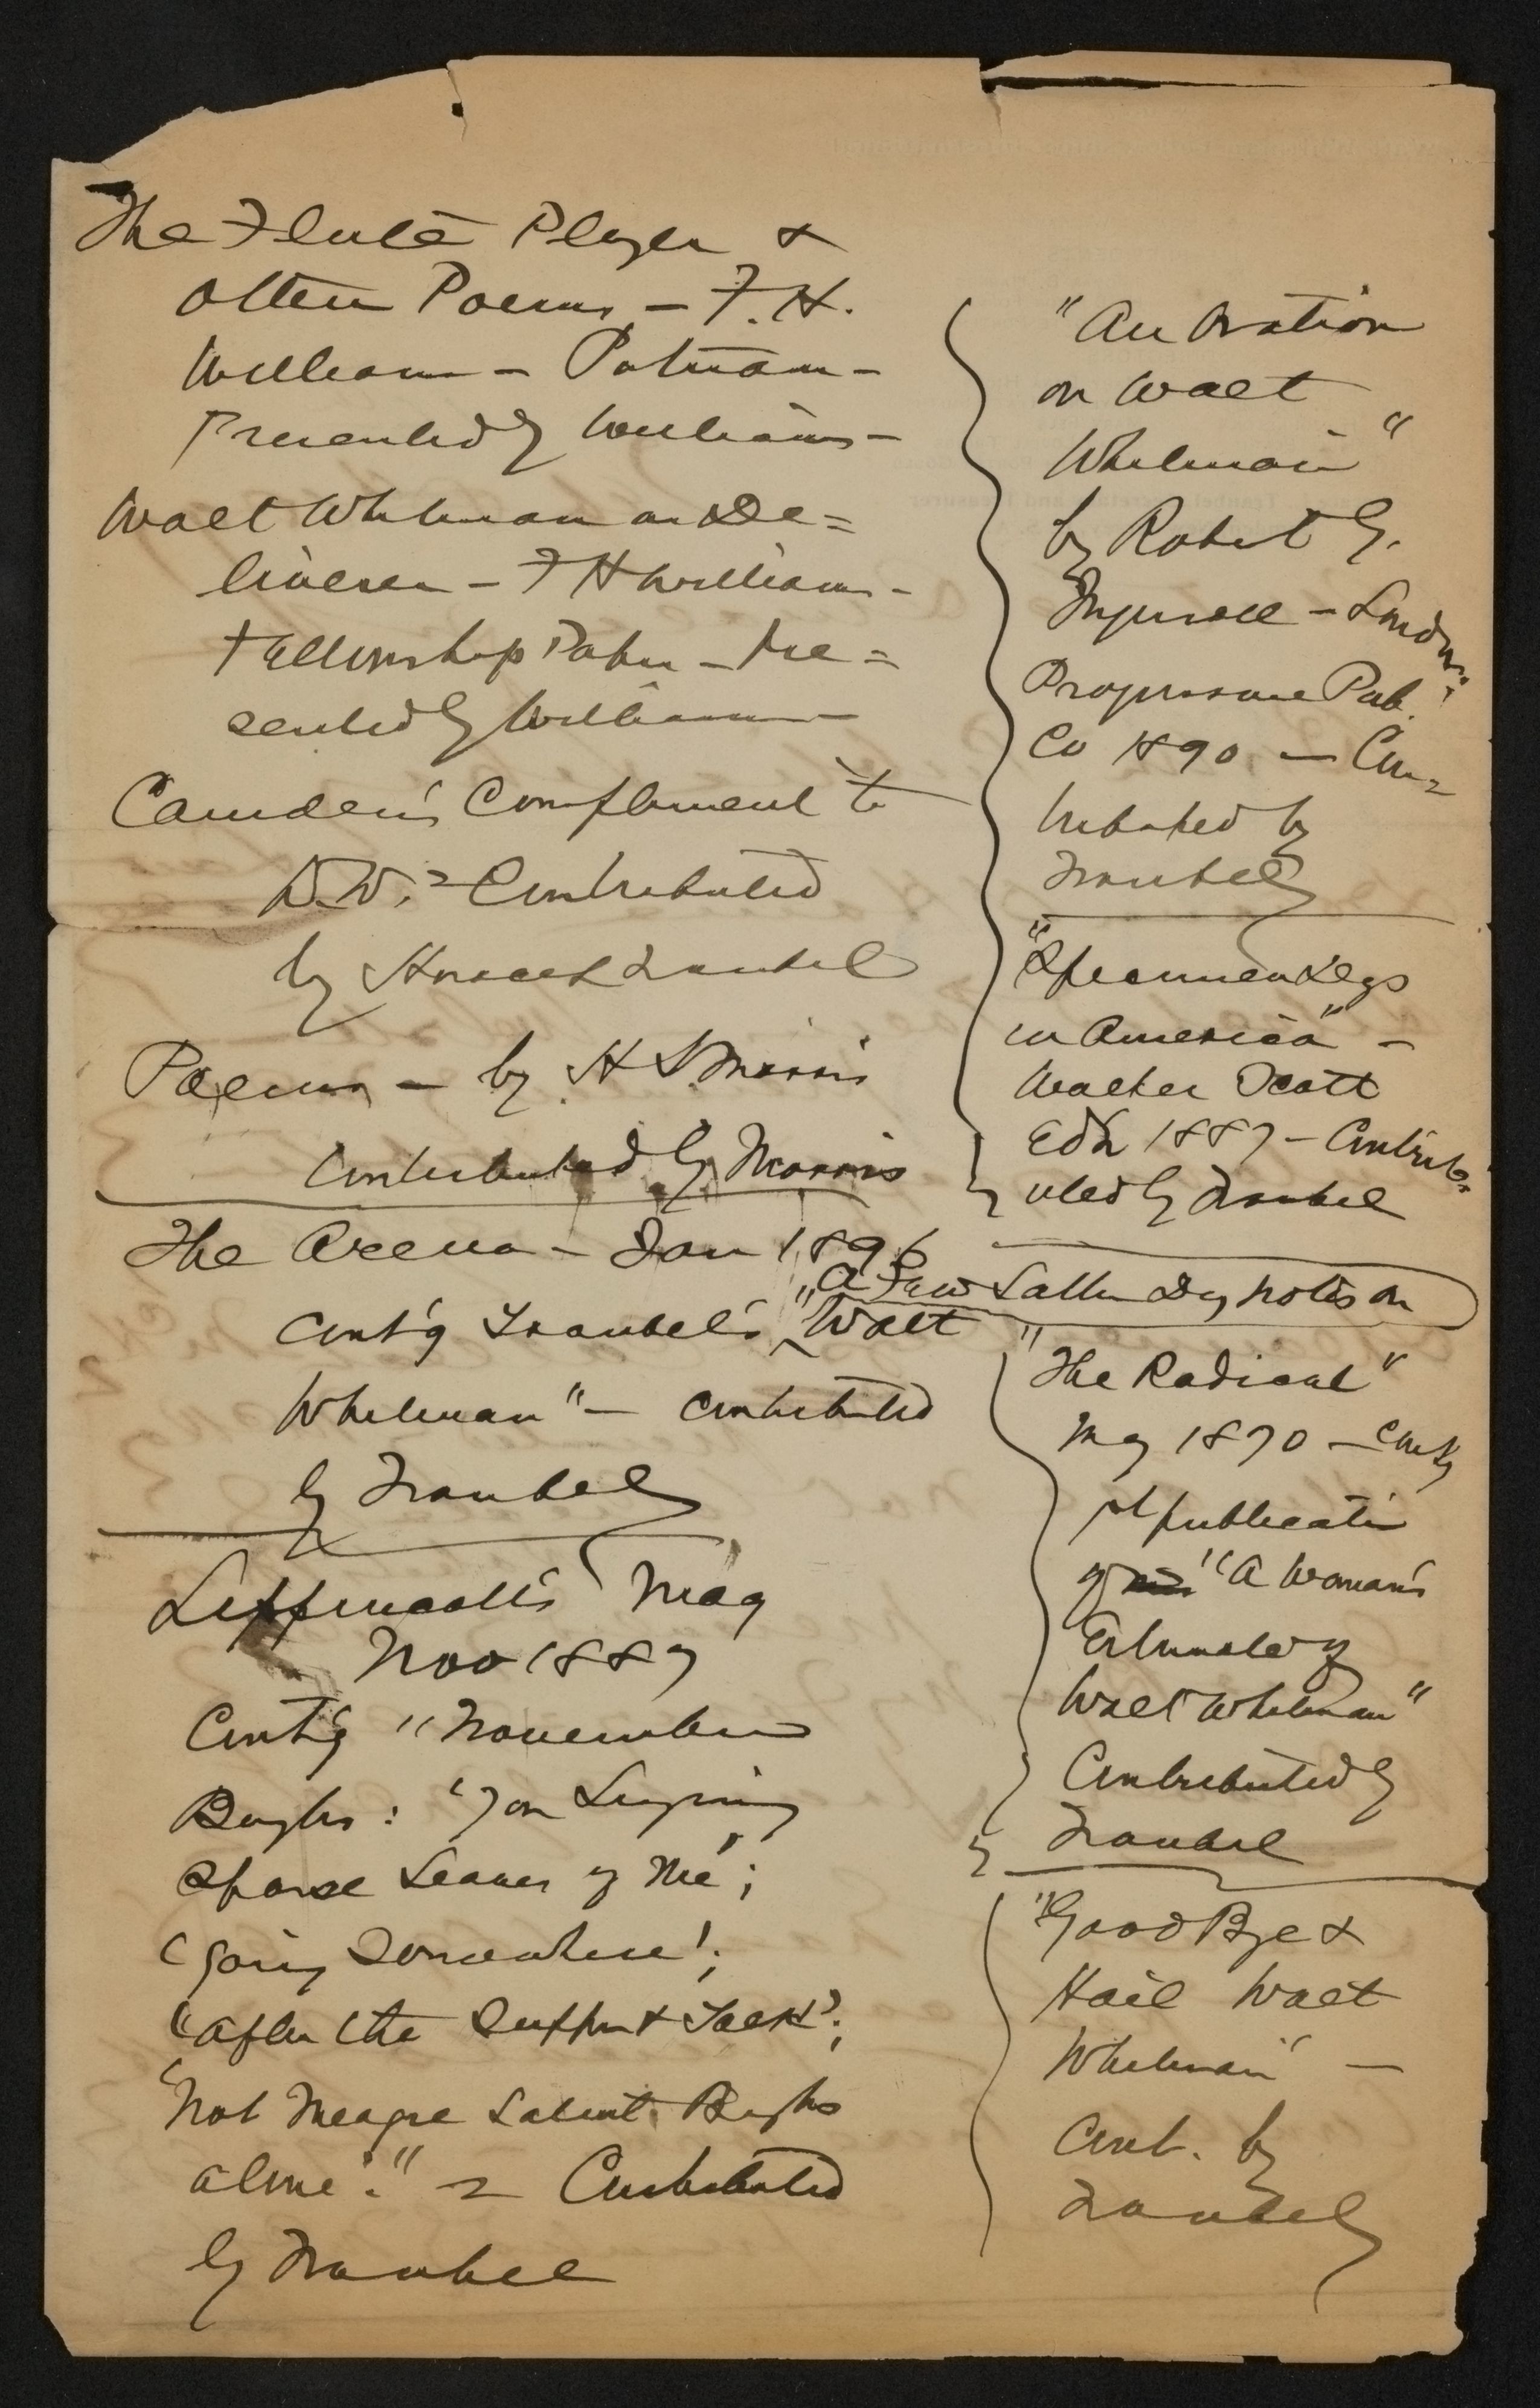 The Flute Player &
other Poems — F. H.
Williams — Putnam —
Presented by Williams —
Walt Whitman as De=
liverer — F H Williams —
Fellowship Paper — Pre=
sented by Williams —
Camden's Compliment to
W. W. = Contributed
by Horace L Traubel
Poems — by H S Morris
Contributed by Morris
The Arena — Jan 1896
Cont'g Traubel's "A Few Latter Day Notes on
Walt
Whitman" — Contributed
by Traubel
Lippincott's Mag
Nov 1887
Cont'g "November
Boughs: 'You Lingering
Sparse Leaves of Me';
'Going Somewhere';
'After the Supper & Talk';
'Not Meagre Latent Boughs
alone'." = Contributed
by Traubel
"An Oration
on Walt
Whitman"
by Robert G.
Ingersoll — London:
Progressive Pub.
Co 1890 — Con=
tributed by
Traubel
"Specimen Days
in America" —
Walter Scott
Edn 1887 — Contrib=
uted by Traubel
"The Radical"
May 1870 — Cont'g
publication
of "A Woman's
Estimate of
Walt Whitman"
Contributed by
Traubel
"Good Bye &
Hail Walt
Whitman" —
Cont. by
Traubel